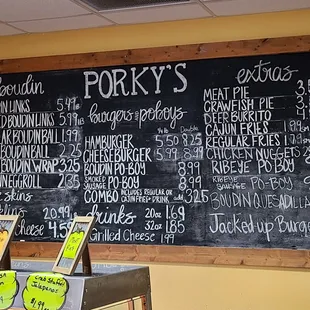 PORKY'S
oudin
N LINKS 5.49
D LINKS
AR BOUDIN BALL 1.99
BOUDIN BALL 2.25
BOUDIN WRAP 3.25
N EGGROLL 2.35
SKINS
20.95
CHEESE 4.5
burgers & poboys
1/4 lb. Double
HAMBURGER 5.50 8.25
CHEESEBURGER 5.99 8.99
BOUDIN PO-BOY 8.99
SMOKED SAUSAGE PO-BOY 8.99
COMBO INCLUDES REGULAR OR CAJUN FRIES AND DRINK
drinks 20oz 1.69
Grilled Cheese 1.99
extras
MEAT PIE 3.5
CRAWFISH PIE
DEER BURRITO
CAJUN FRIES
REGULAR FRIES
CHICKEN NUGGETS
RIBEYE PO-BOY
RIBEYE SAUSAGE PO-BOY
BOUDIN QUESADILLA
Jacked up Burger
Jalapenos
$1.99